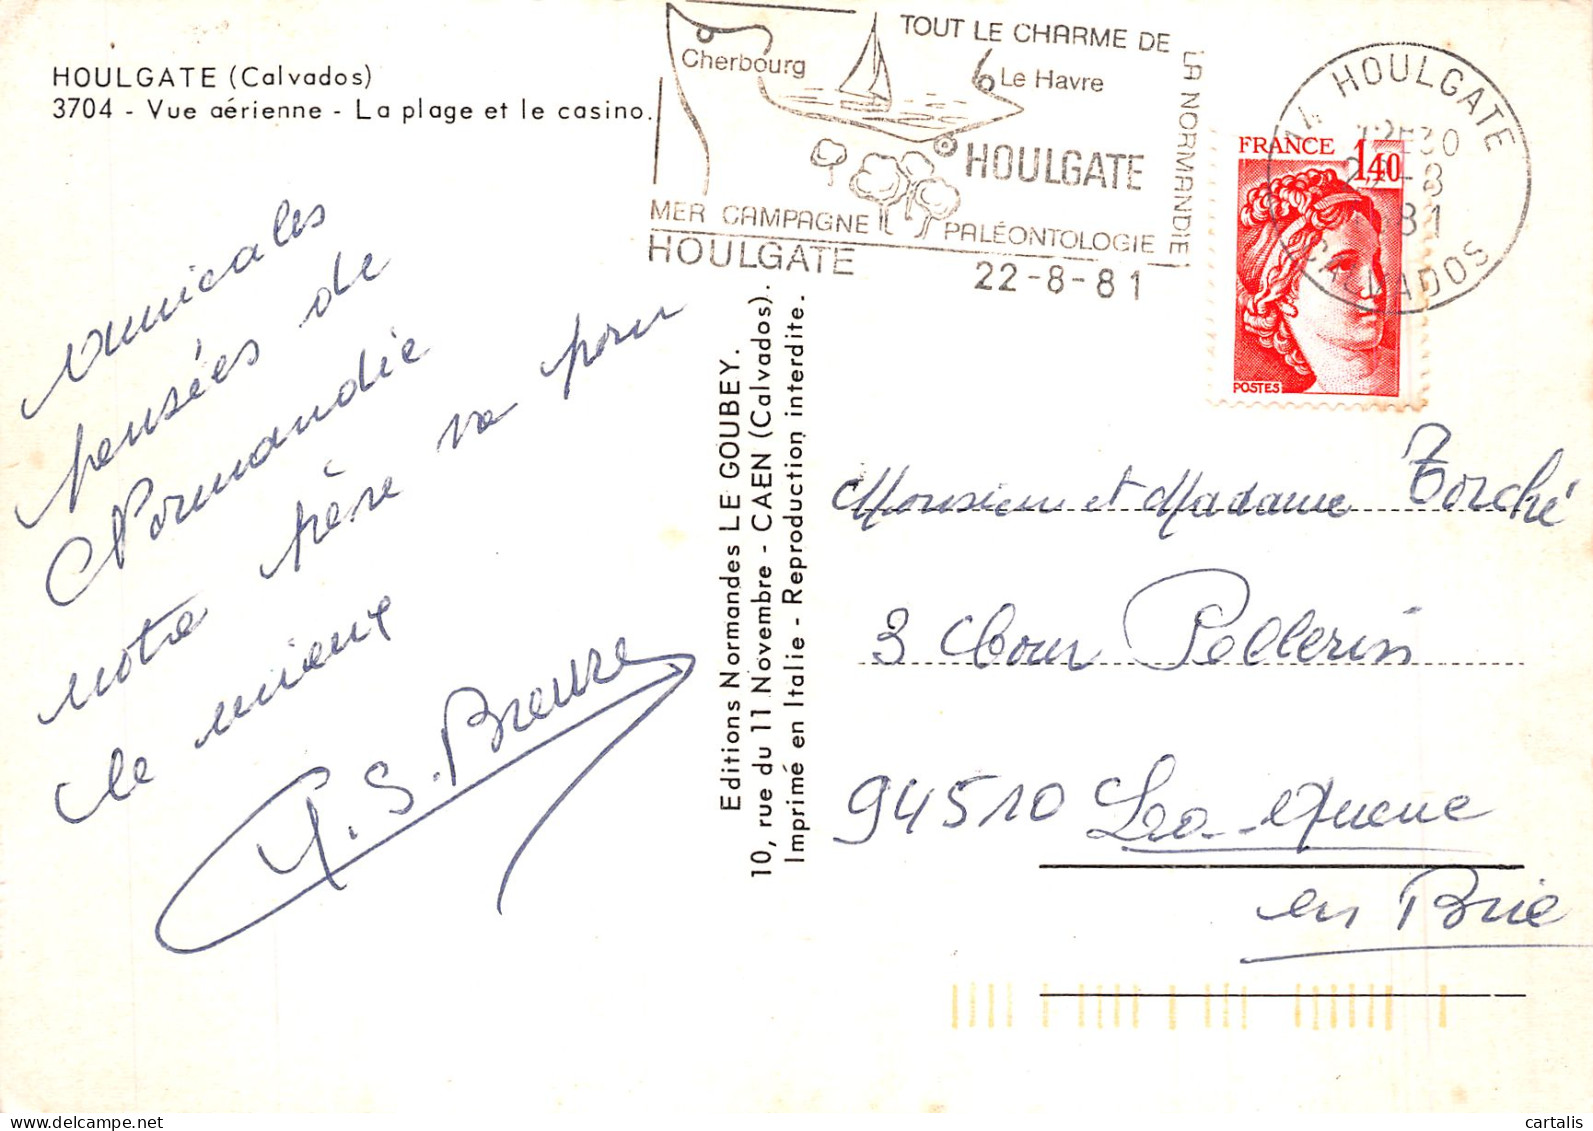 HOULGATE (Calvados)
3704 - Vue aérienne - La plage et le casino.
TOUT LE CHARME DE
LA NORMANDIE
Cherbourg
Le Havre
HOULGATE
MER CAMPAGNE PALÉONTOLOGIE
HOULGATE 22-8-81
14 HOULGATE
22-8
81
CALVADOS
FRANCE 1,40
POSTES
amicales
pensées de
Normandie
notre père va pour
le mieux
Editions Normandes LE GOUBEY.
10, rue du 11 Novembre - CAEN (Calvados).
Imprimé en Italie - Reproduction interdite.
Monsieur et Madame Torché
3 Cour Pellerin
94510 La Queue
en Brie
cartalis delcampe.net